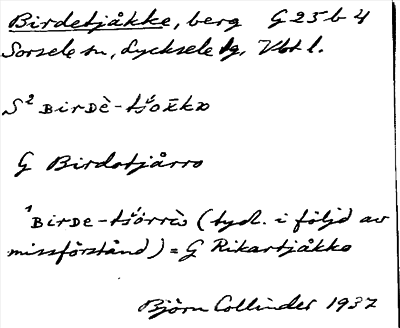 Birdetjåkke, berg G 25 b 4
Sorsele sn, Lycksele lg, Vbt l.
S² BIRDÈ-tš́ok̄kɒ
G Birdotjårro
¹BIRDE-tš́örrės (tydl. i följd av
missförstånd) = G Rikartjåkko
Björn Collinder 1937